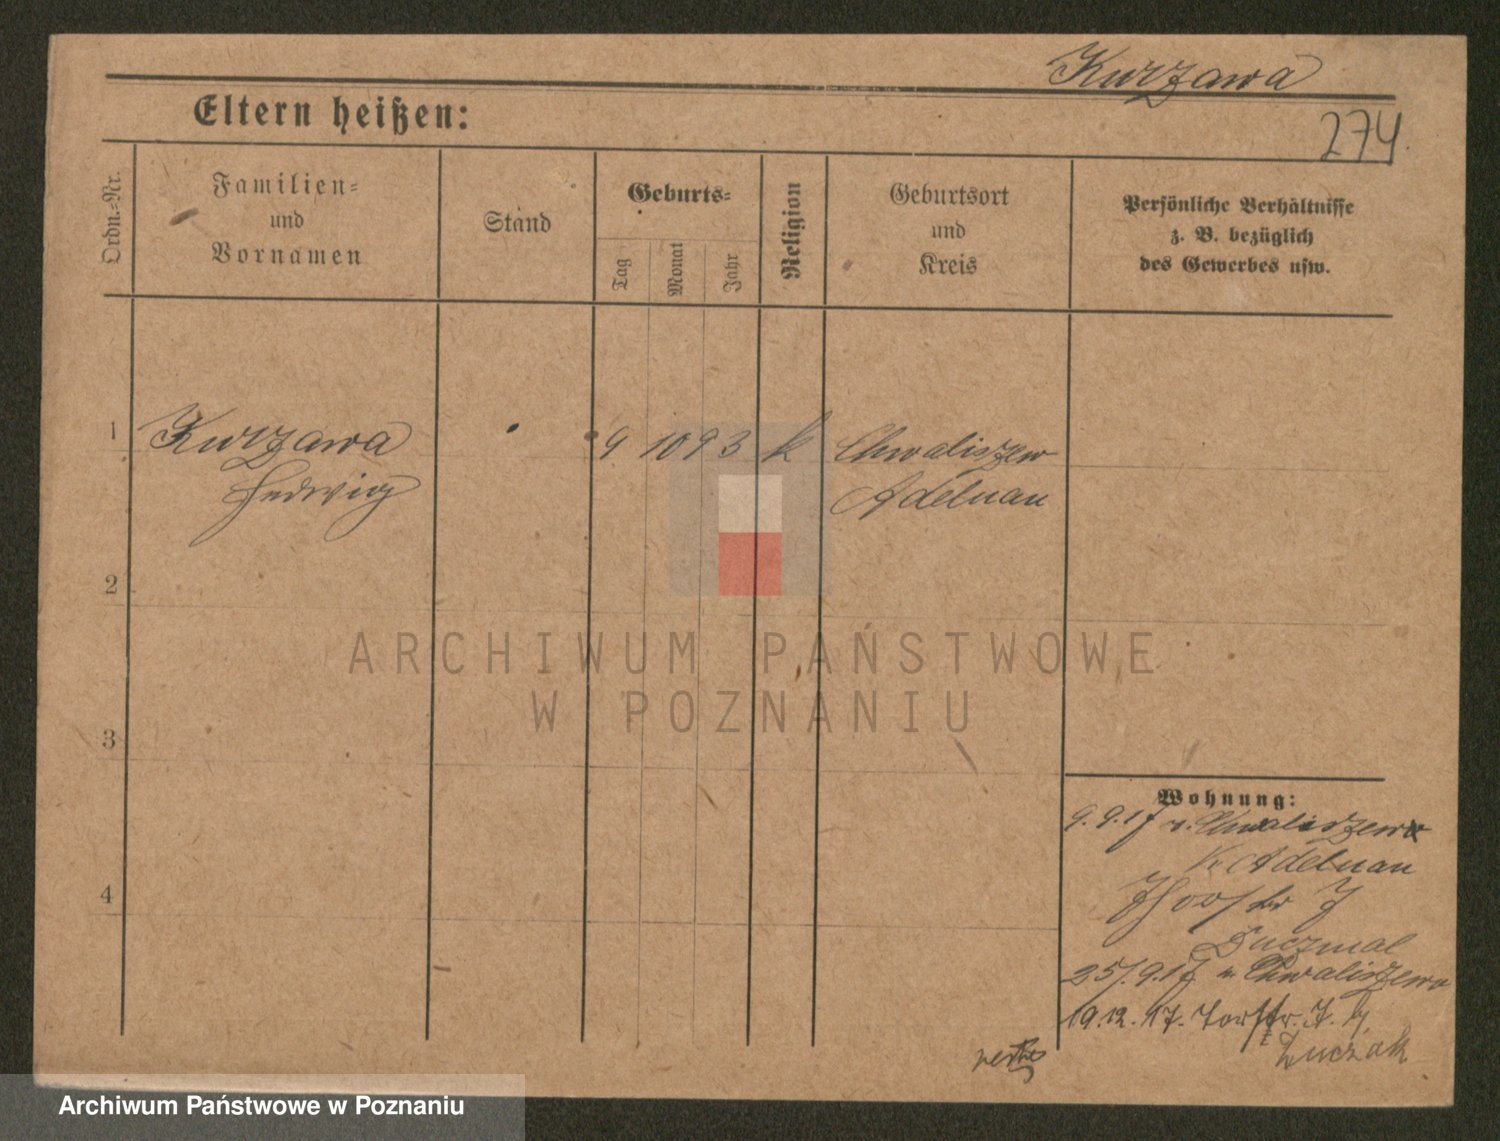 Kurzawa
Eltern heißen:
274
Ordn.=Nr.
Familien=
und
Vornamen
Stand
Geburts=
Tag
Monat
Jahr
Religion
Geburtsort
und
Kreis
Persönliche Verhältnisse
z. B. bezüglich
des Gewerbes usw.
1
Kurzawa
Hedwig
9 10 93 k Chwaliszew
Adelnau
2
ARCHIWUM PAŃSTWOWE
W POZNANIU
3
Wohnung:
9.9.17 n. Chwaliszew
Kr Adelnau
4
Duczmal
25.9.17 n Chwaliszew
19.12.17. Torfstr. 7. b/
Luczak
Archiwum Państwowe w Poznaniu